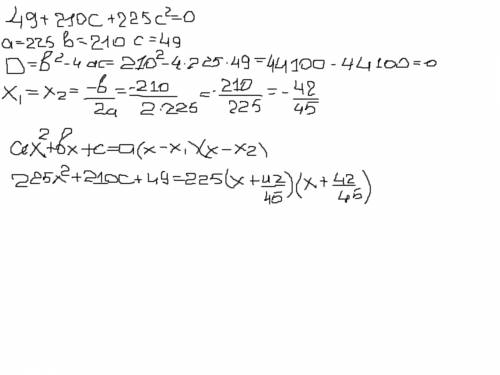 49+210c+225c²=0
a=225 b=210 c=49
D=b²-4ac=210²-4·225·49=44100-44100=0
x₁=x₂=-b/2a=-210/2·225=-210/225=-42/45
ax²+bx+c=a(x-x₁)(x-x₂)
225x²+210c+49=225(x+42/45)(x+42/45)